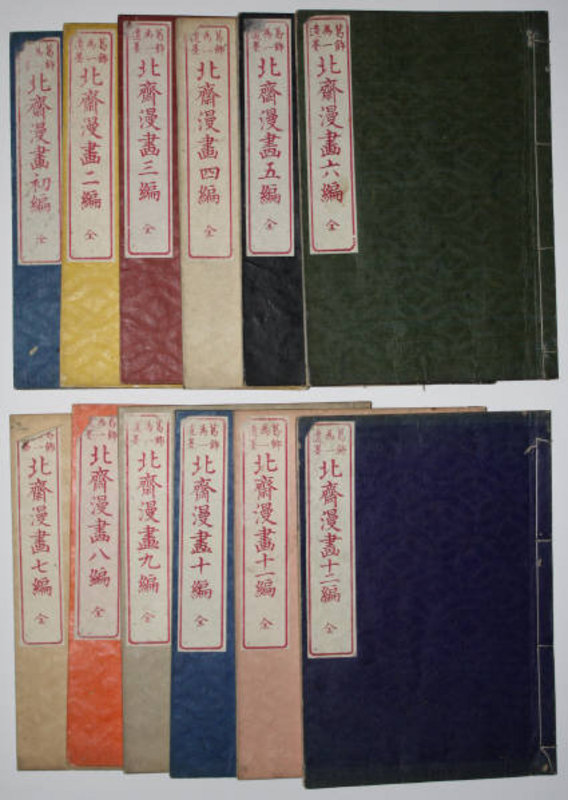 葛飾
為一
北齋漫畫初編
全
葛飾
為一
遺墨
北齋漫畫二編
全
葛飾
為一
遺墨
北齋漫畫三編
全
葛飾
為一
遺墨
北齋漫畫四編
全
葛飾
為一
遺墨
北齋漫畫五編
全
葛飾
為一
遺墨
北齋漫畫六編
全
北齋漫畫七編
全
葛飾
為一
北齋漫畫八編
全
葛飾
為一
遺墨
北齋漫畫九編
全
葛飾
為一
遺墨
北齋漫畫十編
全
葛飾
為一
遺墨
北齋漫畫十一編
全
葛飾
為一
遺墨
北齋漫畫十二編
全